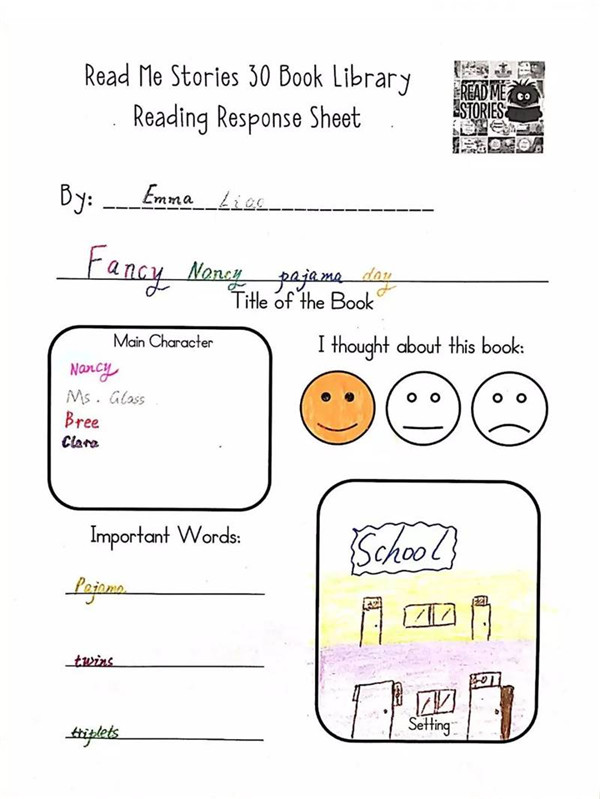 Read Me Stories 30 Book Library
Reading Response Sheet
READ ME
STORIES
By: Emma Liao
Fancy Nancy pajama day
Title of the Book
Main Character
Nancy
Ms. Glass
Bree
Clara
I thought about this book:
Important Words:
Pajama
twins
triplets
School
Setting